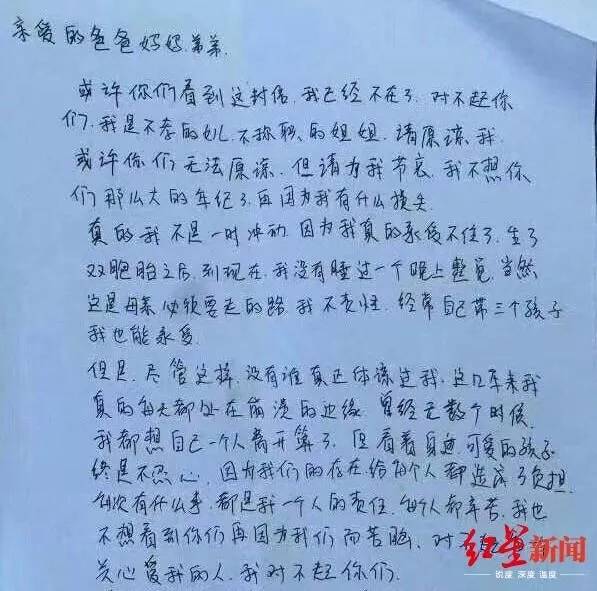 亲爱的爸爸妈妈.弟弟.
或许你们看到这封信.我已经不在了.对不起你
们.我是不孝的女儿.不称职的姐姐.请原谅我.
或许你们无法原谅.但请为我节哀.我不想你
们那么大的年纪了.再因为我有什么损失.
真的我不是一时冲动.因为我真的承受不住了.生了
双胞胎之后.到现在.我没有睡过一个晚上整觉.当然
这是母亲必须要走的路.我不责怪.经常自己带三个孩子
我也能承受.
但是.尽管这样.没有谁真正体谅过我.这几年来我
真的每天都处在崩溃的边缘.曾经无数个时候.
我都想自己一个人离开算了.但看着身边可爱的孩子
终是不忍心.因为我们的存在给每个人都造成了负担.
每次有什么事.都是我一个人的责任.每个人都辛苦.我也
不想看到你们再因为我们而苦恼.对不
关心爱我的人.我对不起你们.
红星新闻
锐度 深度 温度